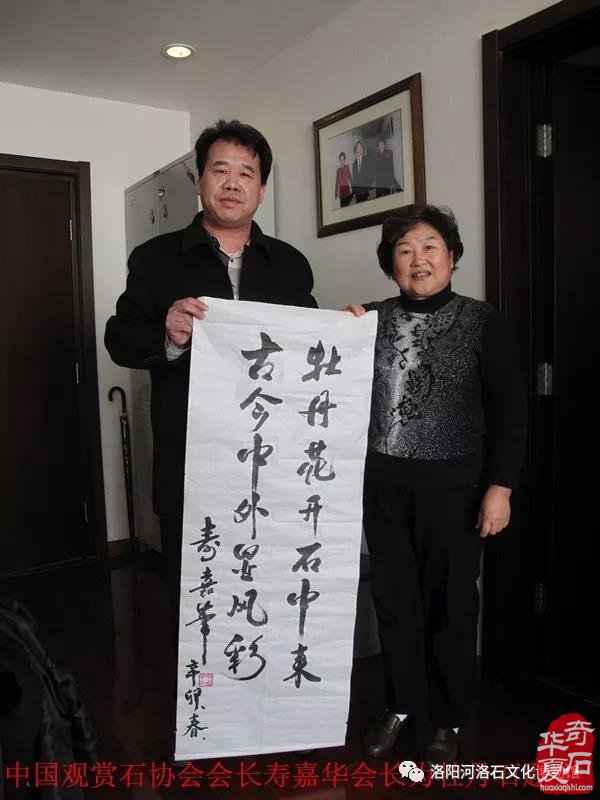 牡丹花开石中来
古今中外显风彩
寿嘉华
辛卯春
中国观赏石协会会长寿嘉华会长为牡丹石
洛阳河洛石文化
华夏奇石
huaxiaqishi.com